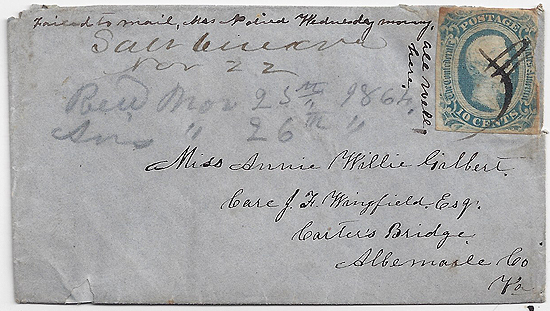 Failed to mail, Mas Noticed Wednesday morng.
all well
here,
Salt
Nov 22
Recd Nov 25th 1864,
Ans " 26th "
POSTAGE
TEN CENTS
Miss Annie Willie Gilbert.
Care J. F. Wingfield. Esq.
Carter's Bridge,
Albemarle Co
Va